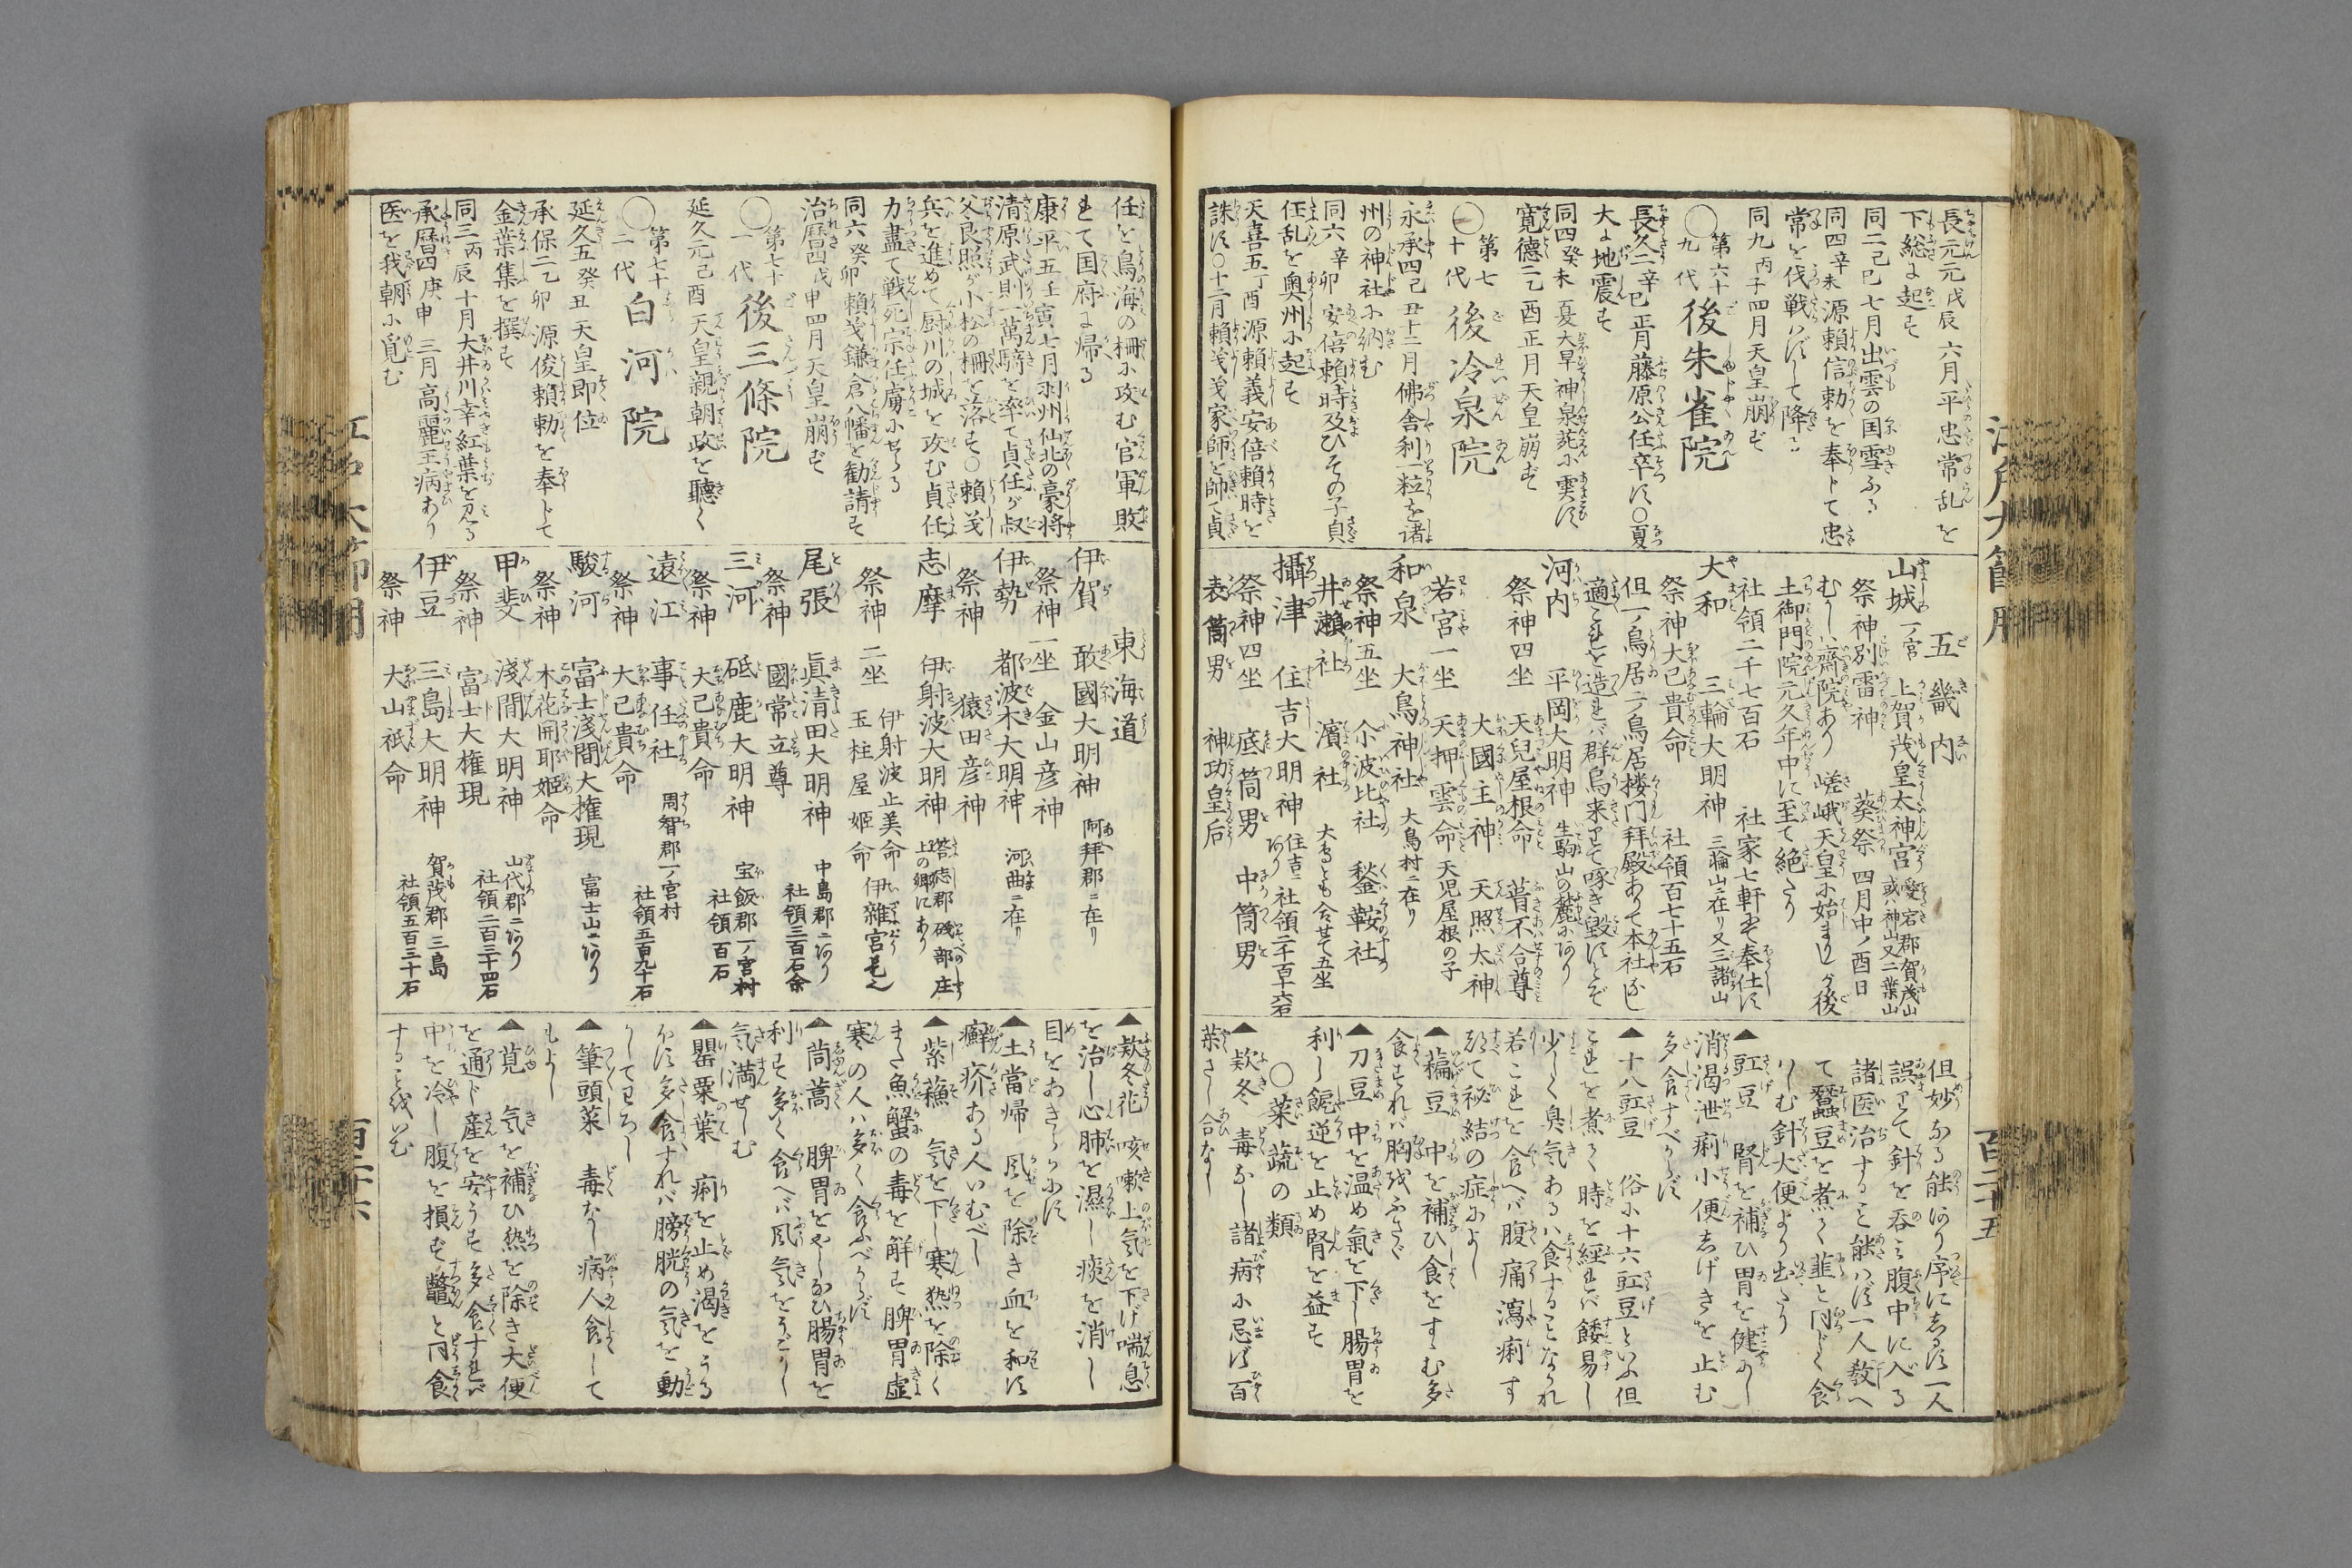 長元元戊辰 六月平忠常乱を
下総に起す
同二己巳七月出雲の国雪ふる
同四辛未 源頼信勅を奉じて忠
常を伐戦はずして降る
同九丙子四月天皇崩ず
〇第六十九代 後朱雀院
長久二辛巳正月藤原公任卒す〇夏
大に地震す
同四癸未 夏大旱神泉苑に雩す
寛徳二乙酉正月天皇崩ず
〇第七十代 後冷泉院
永承四己丑十二月佛舎利一粒を諸
州の神社に納む
同六辛卯 安倍頼時及びその子貞
任乱を奥州に起す
天喜五丁酉 源頼義安倍頼時を
誅す〇十二月頼義義家師を帥て貞
五畿内
山城 一ノ宮 上賀茂皇太神宮 愛宕郡賀茂山 或ハ神山又二葉山
祭神別雷神 葵祭 四月中ノ酉日
むかし齋院あり 嵯峨天皇に始まりしが後
土御門院元久年中に至て絶たり
社領二千七百石 社家七軒にて奉仕す
大和 三輪大明神 三輪山ニ在リ又三諸山
祭神大己貴命 社領百七十五石
但一ノ鳥居二ノ鳥居楼門拝殿ありて本社なし
適これを造れバ群烏来りて啄き毀すとぞ
河内 平岡大明神 生駒山の麓にあり
祭神四坐 天兒屋根命 葺不合尊
大國主神 天照太神
若宮一坐 天押雲命 天児屋根の子
和泉 大鳥神社 大鳥村ニ在り
祭神五坐 尒波比社 鍬鞍社
井瀬社 濱社 大鳥とも合せて五坐
攝津 住吉大明神 住吉ニあり 社領二千百三十六石
祭神四坐 底筒男 中筒男
表筒男 神功皇后
但妙なる能あり序にしるす一人
誤りて針を呑み腹中に入る
諸医治すること能はず一人教へ
て蠶豆を煮て韮と同じく食
りしむ針大便より出たり
▲豇豆 腎を補ひ胃を健にし
消渇泄痢小便しげきを止む
多食すべからず
▲十八豇豆 俗に十六豇豆といふ但
これを煮て時を經れバ餧易し
少しく臭気あるハ食することなかれ
若これを食へバ腹痛瀉痢す
都て秘結の症によし
▲藊豆 中を補ひ食をすゝむ多
食すれバ胸をふさぐ
▲刀豆 中を温め氣を下し腸胃を
利し呃逆を止め腎を益す
〇菜蔬の類
▲欵冬 毒なし諸病に忌ず百
薬さし合なし
百二十五
任を鳥海の柵に攻む官軍敗
れて国府に帰る
康平五壬寅七月羽州仙北の豪将
清原武則一萬騎を率て貞任が叔
父良照が小松の柵を落す〇頼義
兵を進めて厨川の城を攻む貞任
力盡て戦死宗任虜にせらる
同六癸卯 頼義鎌倉八幡を勧請す
治暦四戊申四月天皇崩ず
〇第七十一代 後三條院
延久元己酉 天皇親朝政を聽く
〇第七十二代 白河院
延久五癸丑 天皇即位
承保二乙卯 源俊頼勅を奉じて
金葉集を撰す
同三丙辰十月大井川幸紅葉を見る
承暦四庚申 三月高麗王病あり
医を我朝に覓む
東海道
伊賀 敢國大明神 阿拜郡ニ在り
祭神一坐 金山彦神
伊勢 都波木大明神 河曲ニ在リ
祭神 猿田彦神
志摩 伊射波大明神 荅志郡 磯部庄 上の郷にあり
祭神二坐 伊射波止美命 玉柱屋姫命 伊雑宮是也
尾張 眞清田大明神 中島郡ニあり
祭神 國常立尊 社領三百石余
三河 砥鹿大明神 宝飯郡一ノ宮村
祭神 大己貴命 社領百石
遠江 事任社 周智郡一ノ宮村
祭神 大己貴命 社領五百九十石
駿河 富士淺間大権現 富士山ニあり
祭神 木花開耶姫命
甲斐 淺間大明神 山代郡ニあり
祭神 富士大権現 社領二百三十四石
伊豆 三島大明神 賀茂郡三島
祭神 大山祇命 社領五百三十石
▲欵冬花 咳嗽上気を下げ喘息
を治し心肺を濕し痰を消し
目をあきらかにす
▲土當帰 風を除き血を和す
癬疥ある人いむべし
▲紫蘓 気を下し寒熱を除く
また魚蟹の毒を解す脾胃虚
寒の人ハ多く食ふべからず
▲茼蒿 脾胃をやしなひ腸胃を
利す多く食へバ風気をうごかし
気満せしむ
▲罌粟葉 痢を止め渇をうる
ほす多食すれバ膀胱の気を動
かしてわろし
▲筆頭菜 毒なし病人食して
もよし
▲莧 気を補ひ熱を除き大便
を通じ産を安うす多食すれバ
中を冷し腹を損ず鼈と同食
することをいむ